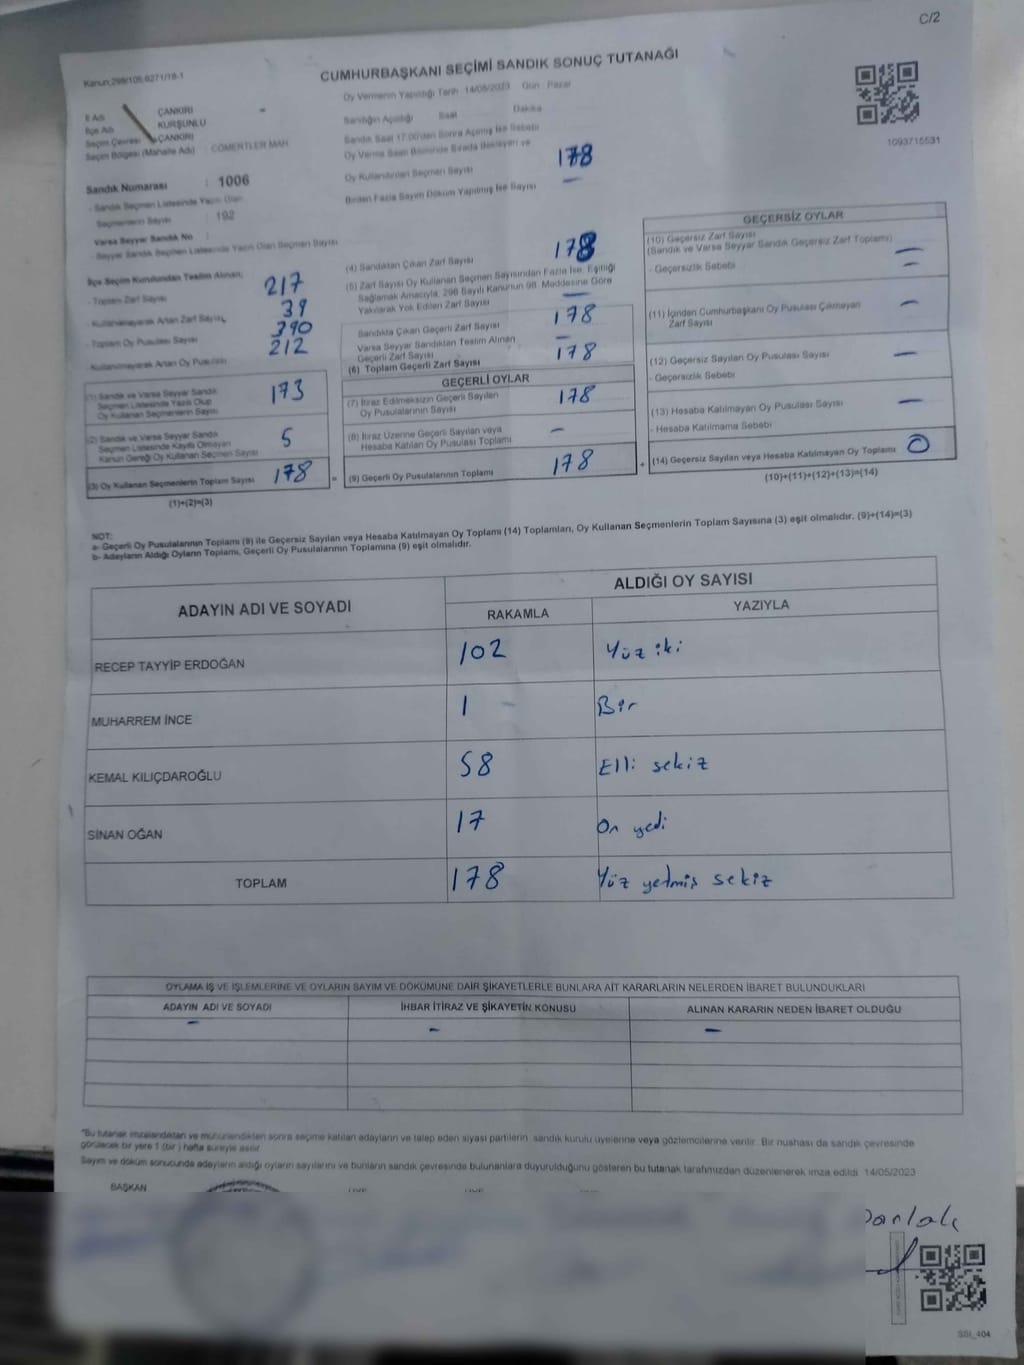 C/2
CUMHURBAŞKANI SEÇİMİ SANDIK SONUÇ TUTANAĞI
Oy Vermenin Yapıldığı Tarih 14/05/2023 Gün : Pazar
İl Adı ÇANKIRI
İlçe Adı KURŞUNLU
Seçim Çevresi ÇANKIRI
Seçim Bölgesi (Mahalle Adı) : CÖMERTLER MAH.
Sandık Numarası : 1006
- Sandık Seçmen Listesinde Yazılı Olan
Seçmenlerin Sayısı : 192
Varsa Seyyar Sandık No :
- Seyyar Sandık Seçmen Listesinde Yazılı Olan Seçmen Sayısı
Sandığın Açıldığı Saat Dakika
Sandık Saat 17.00'den Sonra Açılmış İse Sebebi
Oy Verme Saati Bitiminde Sırada Bekleyen ve
Oy Kullandırılan Seçmen Sayısı 178
Birden Fazla Sayım Döküm Yapılmış İse Sayısı –
1093715531
İlçe Seçim Kurulundan Teslim Alınan;
- Toplam Zarf Sayısı 217
- Kullanılmayarak Artan Zarf Sayısı 39
- Toplam Oy Pusulası Sayısı 390
- Kullanılmayarak Artan Oy Pusulası 212
(1) Sandık ve Varsa Seyyar Sandık
Seçmen Listesinde Yazılı Olup
Oy Kullanan Seçmenlerin Sayısı 173
(2) Sandık ve Varsa Seyyar Sandık
Seçmen Listesinde Kayıtlı Olmayan
Kanun Gereği Oy Kullanan Seçmen Sayısı 5
(3) Oy Kullanan Seçmenlerin Toplam Sayısı 178
(1)+(2)=(3)
(4) Sandıktan Çıkan Zarf Sayısı 178
(5) Zarf Sayısı Oy Kullanan Seçmen Sayısından Fazla İse, Eşitliği
Sağlamak Amacıyla, 298 Sayılı Kanunun 98. Maddesine Göre
Yakılarak Yok Edilen Zarf Sayısı –
Sandıkta Çıkan Geçerli Zarf Sayısı 178
Varsa Seyyar Sandıktan Teslim Alınan
Geçerli Zarf Sayısı –
(6) Toplam Geçerli Zarf Sayısı 178
GEÇERLİ OYLAR
(7) İtiraz Edilmeksizin Geçerli Sayılan
Oy Pusulalarının Sayısı 178
(8) İtiraz Üzerine Geçerli Sayılan veya
Hesaba Katılan Oy Pusulası Toplamı –
(9) Geçerli Oy Pusulalarının Toplamı 178
GEÇERSİZ OYLAR
(10) Geçersiz Zarf Sayısı
(Sandık ve Varsa Seyyar Sandık Geçersiz Zarf Toplamı) –
- Geçersizlik Sebebi –
(11) İçinden Cumhurbaşkanı Oy Pusulası Çıkmayan
Zarf Sayısı –
(12) Geçersiz Sayılan Oy Pusulası Sayısı –
- Geçersizlik Sebebi
(13) Hesaba Katılmayan Oy Pusulası Sayısı –
- Hesaba Katılmama Sebebi
(14) Geçersiz Sayılan veya Hesaba Katılmayan Oy Toplamı 0
(10)+(11)+(12)+(13)=(14)
NOT:
a- Geçerli Oy Pusulalarının Toplamı (9) ile Geçersiz Sayılan veya Hesaba Katılmayan Oy Toplamı (14) Toplamları, Oy Kullanan Seçmenlerin Toplam Sayısına (3) eşit olmalıdır. (9)+(14)=(3)
b- Adayların Aldığı Oyların Toplamı, Geçerli Oy Pusulalarının Toplamına (9) eşit olmalıdır.
ADAYIN ADI VE SOYADI ALDIĞI OY SAYISI
RAKAMLA YAZIYLA
RECEP TAYYİP ERDOĞAN 102 Yüz iki
MUHARREM İNCE 1 Bir
KEMAL KILIÇDAROĞLU 58 Elli sekiz
SİNAN OĞAN 17 On yedi
TOPLAM 178 Yüz yetmiş sekiz
OYLAMA İŞ VE İŞLEMLERİNE VE OYLARIN SAYIM VE DÖKÜMÜNE DAİR ŞİKAYETLERLE BUNLARA AİT KARARLARIN NELERDEN İBARET BULUNDUKLARI
ADAYIN ADI VE SOYADI İHBAR İTİRAZ VE ŞİKAYETİN KONUSU ALINAN KARARIN NEDEN İBARET OLDUĞU
– – –
"Bu tutanak imzalandıktan ve mühürlendikten sonra seçime katılan adayların ve talep eden siyasi partilerin sandık kurulu üyelerine veya gözlemcilerine verilir. Bir nüshası da sandık çevresinde
görülecek bir yere 1 (bir) hafta süreyle asılır.
Sayım ve döküm sonucunda adayların aldığı oyların sayılarını ve bunların sandık çevresinde bulunanlara duyurulduğunu gösteren bu tutanak tarafımızdan düzenlenerek imza edildi. 14/05/2023
BAŞKAN
SSI_404